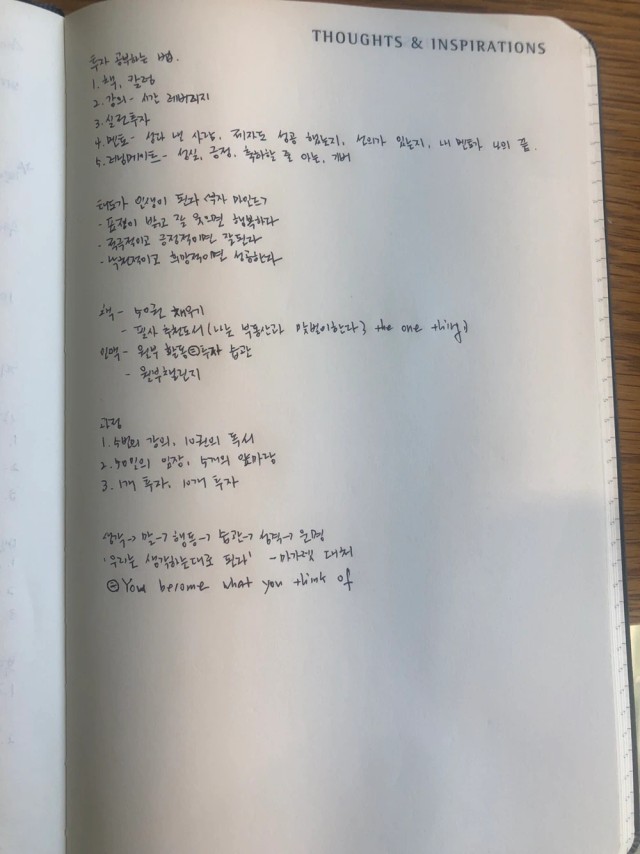 THOUGHTS & INSPIRATIONS
투자 공부하는 법.
1. 책, 칼럼
2. 강의 - 시간 레버리지
3. 실전투자
4. 멘토 - 성과 낸 사람, 제자도 성공 했는지, 선의가 있는지, 내 멘토가 나의 끝.
5. 러닝메이트 - 성실, 긍정, 축하할 줄 아는, 기버
태도가 인생이 된다
- 표정이 밝고 잘 웃으면 행복하다
- 적극적이고 긍정적이면 잘된다
- 낙천적이고 희망적이면 성공한다
책 - 50권 채우기
- 필사 추천도서 (나는 부동산과 맞벌이한다, the one thing)
인맥 - 월부 활동 = 투자 습관
- 월부챌린지
공식
1. 수번의 강의, 10권의 독서
2. 50일의 임장, 수개의 앞마당
3. 1개 투자, 10개 투자
생각 → 말 → 행동 → 습관 → 성격 → 운명
'우리는 생각하는대로 된다' - 마가렛 대처
You become what you think of